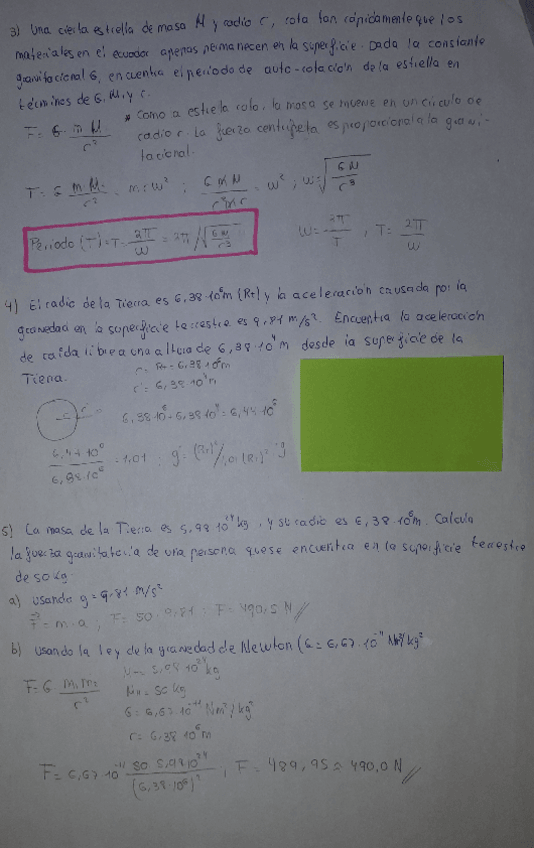 3) Una cierta estrella de masa M y radio r, rota tan rápidamente que los
materiales en el ecuador apenas permanecen en la superficie. Dada la constante
gravitacional G, encuentra el periodo de auto-rotación de la estrella en
términos de G, M, y r.
F = G · m M / r²
* Como a estrella rota, la masa se mueve en un círculo de
radio r. La fuerza centrípeta es proporcional a la gravi-
tacional.
= m r w² ; G m M / r² m r = w² ; w = √ G M / r³
Periodo (T) = T = 2π / w = 2π / √ G M / r³
w = 2π / T , T = 2π / w
4) El radio de la Tierra es 6,38·10⁶m (RT) y la aceleración causada por la
gravedad en la superficie terrestre es 9,81 m/s². Encuentra la aceleración
de caída libre a una altura de 6,38·10⁴m desde la superficie de la
Tierra.
r = RT = 6,38·10⁶m
r = 6,38·10⁴m
6,38·10⁶ + 6,38·10⁴ = 6,44·10⁶
= 1,01 ; g' =
5) La masa de la Tierra es 5,98·10²⁴kg, y su radio es 6,38·10⁶m. Calcula
la fuerza gravitatoria de una persona que se encuentra en la superficie terrestre
de 50kg.
a) usando g = 9.81 m/s²
F = m·a ; F = 50·9,81 ; F = 490,5 N
b) usando la ley de la gravedad de Newton (G = 6,67·10⁻¹¹ Nm²/kg²
F = G m₁m₂ / r²
5,98·10²⁴kg
= 50kg
G = 6,67·10⁻¹¹ Nm²/kg²
r = 6,38·10⁶m
F = 6,67·10⁻¹¹ 50·5,98·10²⁴ / (6,38·10⁶)² ; F = 489,95 ≈ 490,0 N